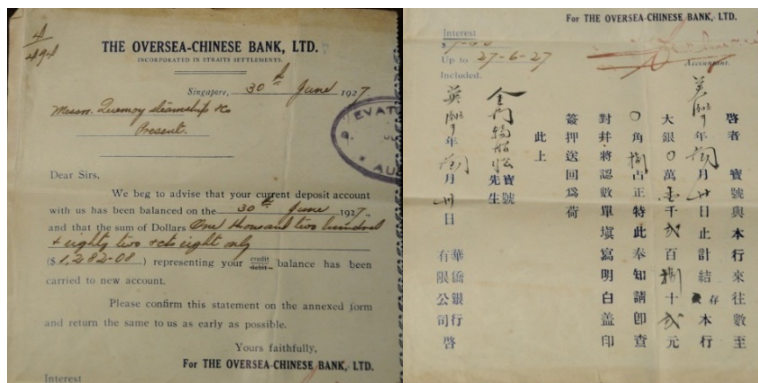 4
494
THE OVERSEA-CHINESE BANK, LTD.
INCORPORATED IN STRAITS SETTLEMENTS.
Singapore, 30th June 1927
Messrs. Quemoy Steamship Co
Present.
Dear Sirs,
We beg to advise that your current deposit account
with us has been balanced on the 30th June 1927
and that the sum of Dollars One thousand two hundred
& eighty two & cts eight only
($1,282-08) representing your credit debit balance has been
carried to new account.
Please confirm this statement on the annexed form
and return the same to us as early as possible.
Yours faithfully,
For THE OVERSEA-CHINESE BANK, LTD.
Interest
For THE OVERSEA-CHINESE BANK, LTD.
Interest
Up to 27-6-27
Included.
ACCOUNTANT.
啓者 寶號與本行來往數至
年 月廿日止計結 存本行
大銀〇萬壹千弍百捌十弍元
〇角捌占正特此奉知請卽查
對幷將認數單塡寫明白蓋印
簽押送回爲荷
此上
金門輪船 寶號先生
華僑銀行有限公司啓
年 月卅日